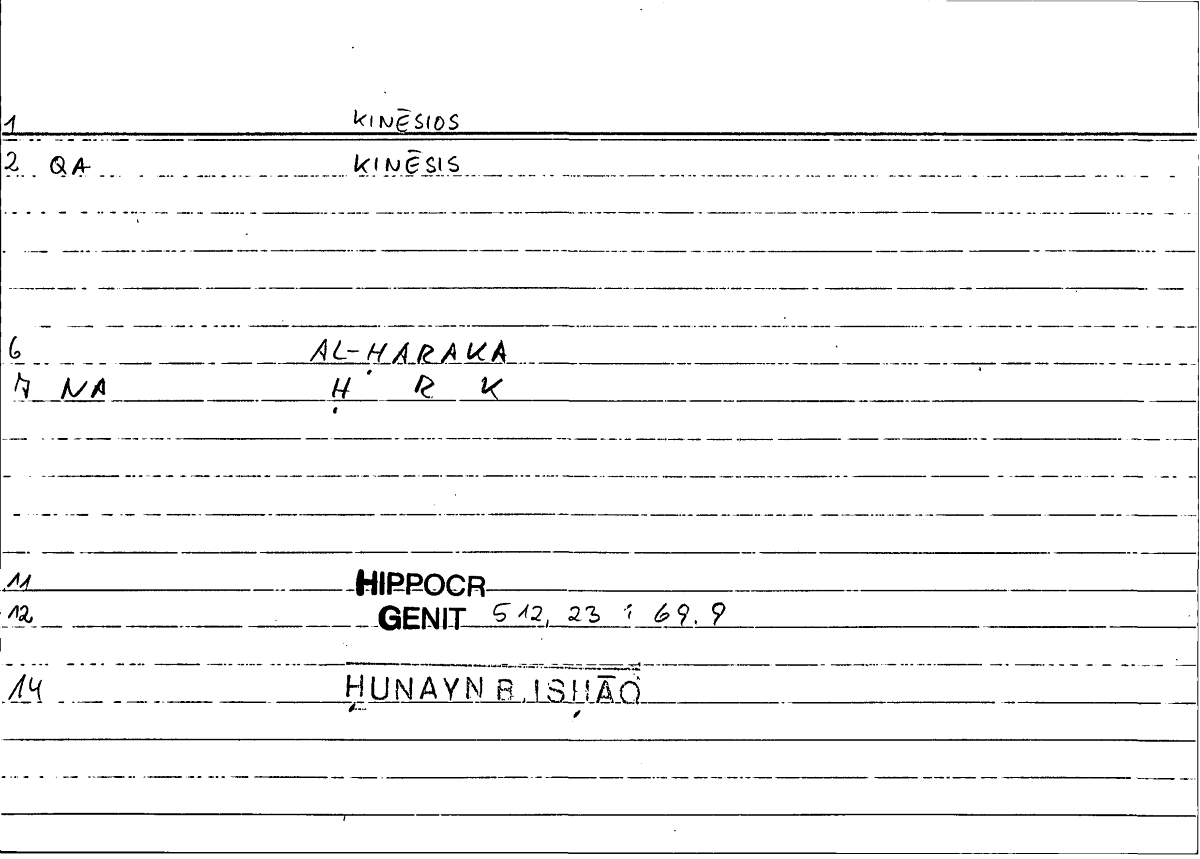 1 KINĒSIOS
2 QA KINĒSIS
6 AL-ḤARAKA
7 NA Ḥ R K
11 HIPPOCR
12 GENIT 512, 23 : 69.9
14 ḤUNAYN B. ISḤĀQ